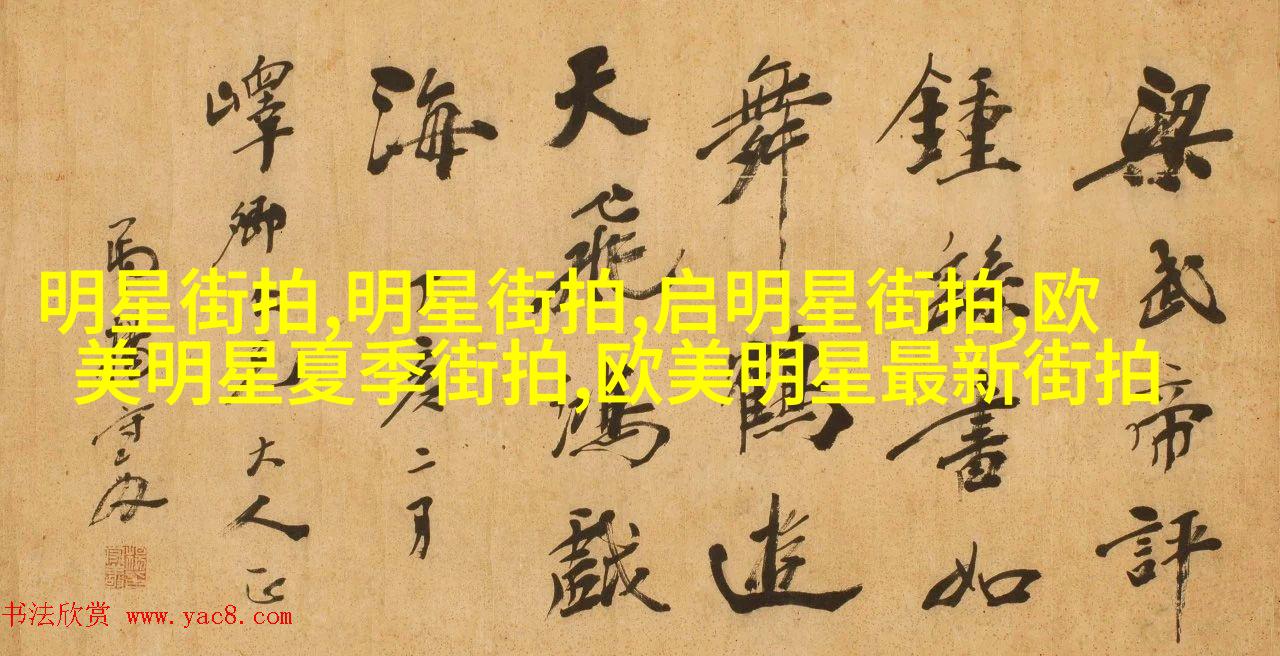 梁武帝評
鍾繇書如
舞鶴遊
天飛鴻戲
海 丁亥二月
嶧卿仁兄大人正
守敬
明星街拍,明星街拍,启明星街拍,欧
美明星夏季街拍,欧美明星最新街拍
书法欣赏 www.yac8.com